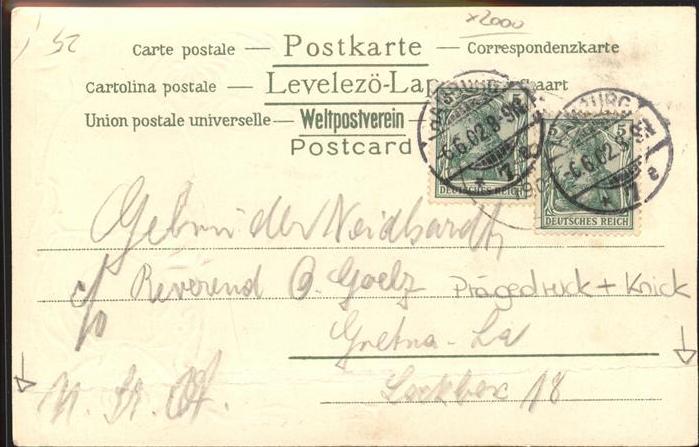 x2000
52
Carte postale — Postkarte — Correspondenzkarte
Cartolina postale — Levelezö-Lap
Union postale universelle — Weltpostverein —
Postcard
5 5
DEUTSCHES REICH
DEUTSCHES REICH
-6.6.02.8-9N.
-6.6.02.8-9N
* 1 e
* 1 e
Gebrüder Neidhardt
c/o Reverend O. Goelz Prägedruck + Knick
Gretna - La
N. Am. Lockbox 18